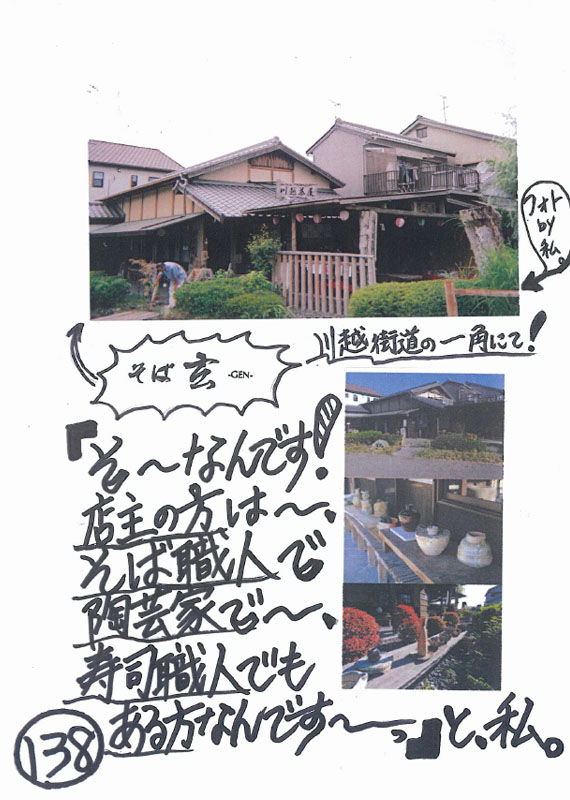 川越茶屋
フォト
by
私。
そば 玄 -GEN-
川越街道の一角にて!
『そ〜なんです!
店主の方は〜、
そば職人で
陶芸家で〜、
寿司職人でも
ある方なんです〜っ』と、私。
138